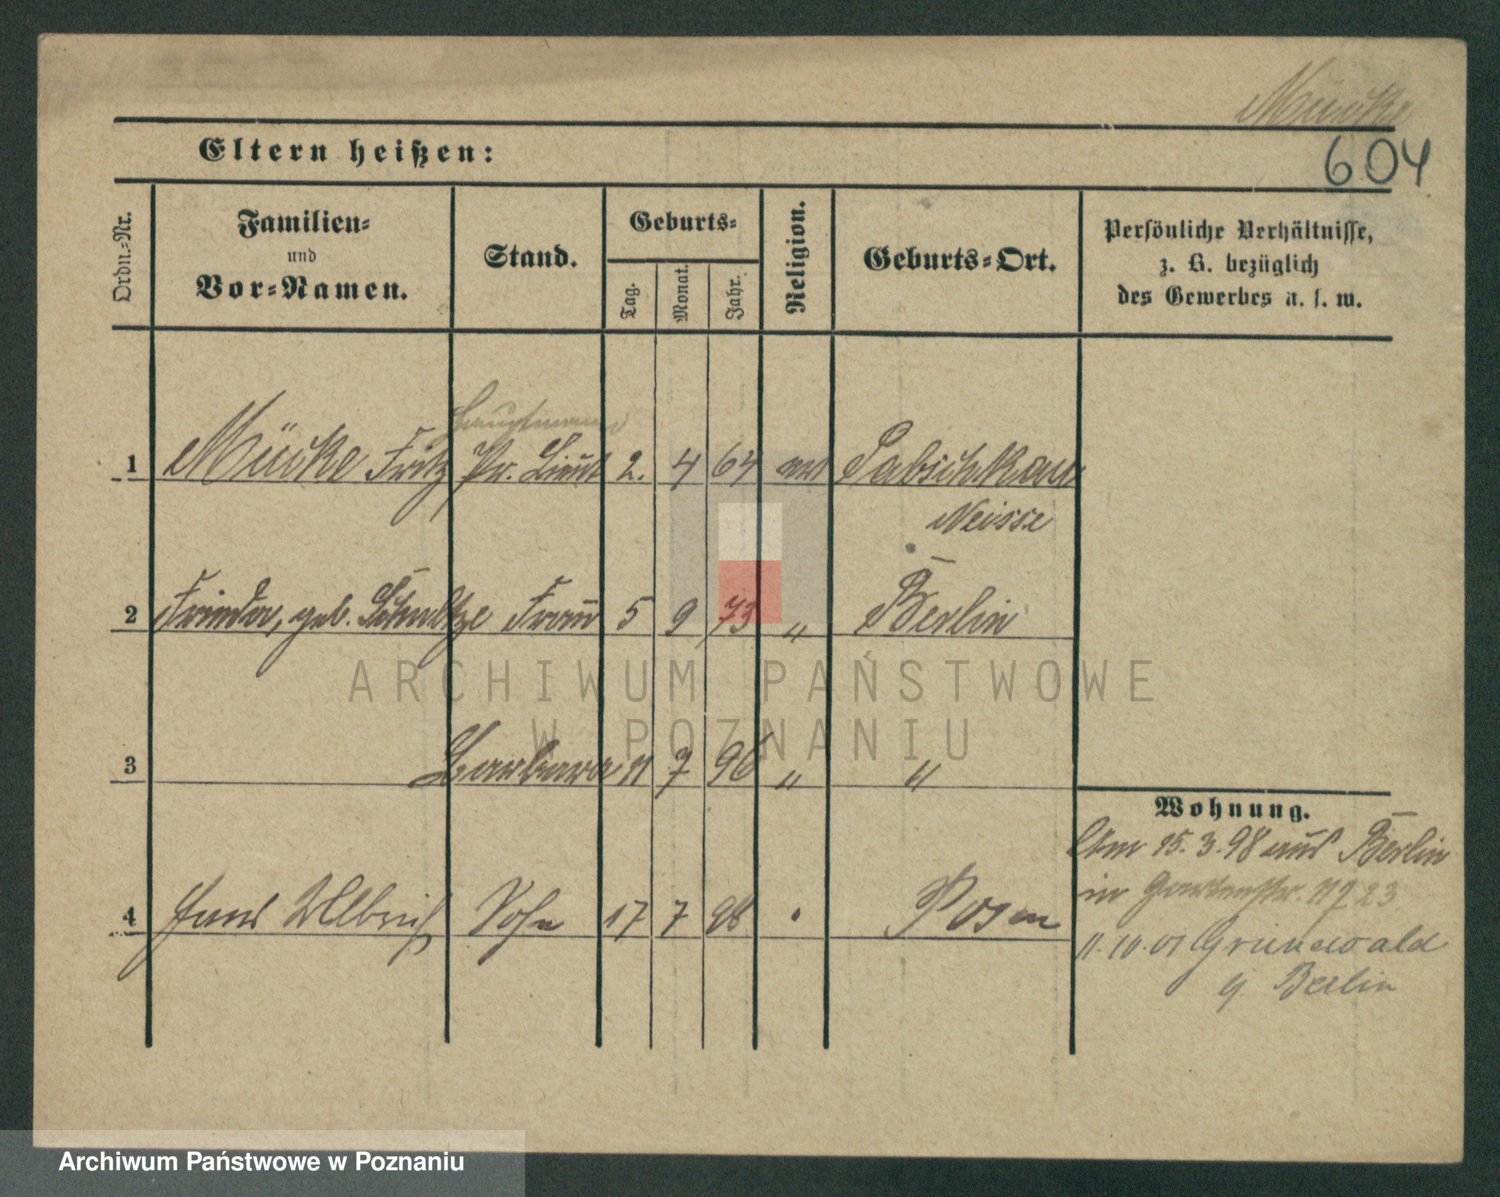 Mücke
604
Eltern heißen:
Ordn.-Nr.
Familien-
und
Vor-Namen.
Stand.
Geburts-
Tag.
Monat.
Jahr.
Religion.
Geburts-Ort.
Persönliche Verhältnisse,
z. B. bezüglich
des Gewerbes u. s. w.
Hauptmann
1 Mücke Fritz Pr. Lieut 2. 4 64 Patschkau
Neisse
2 Frieda, geb. Schultze Frau 5 9 73 " Berlin
3 Barbara 11 7 96 " "
4 Hans Ulbrich Sohn 17 7 98 Posen
Wohnung.
Am 15.3.98 aus Berlin
in Gartenstr. 23
11.10.01 Grunewald
b. Berlin
ARCHIWUM PAŃSTWOWE
W POZNANIU
Archiwum Państwowe w Poznaniu